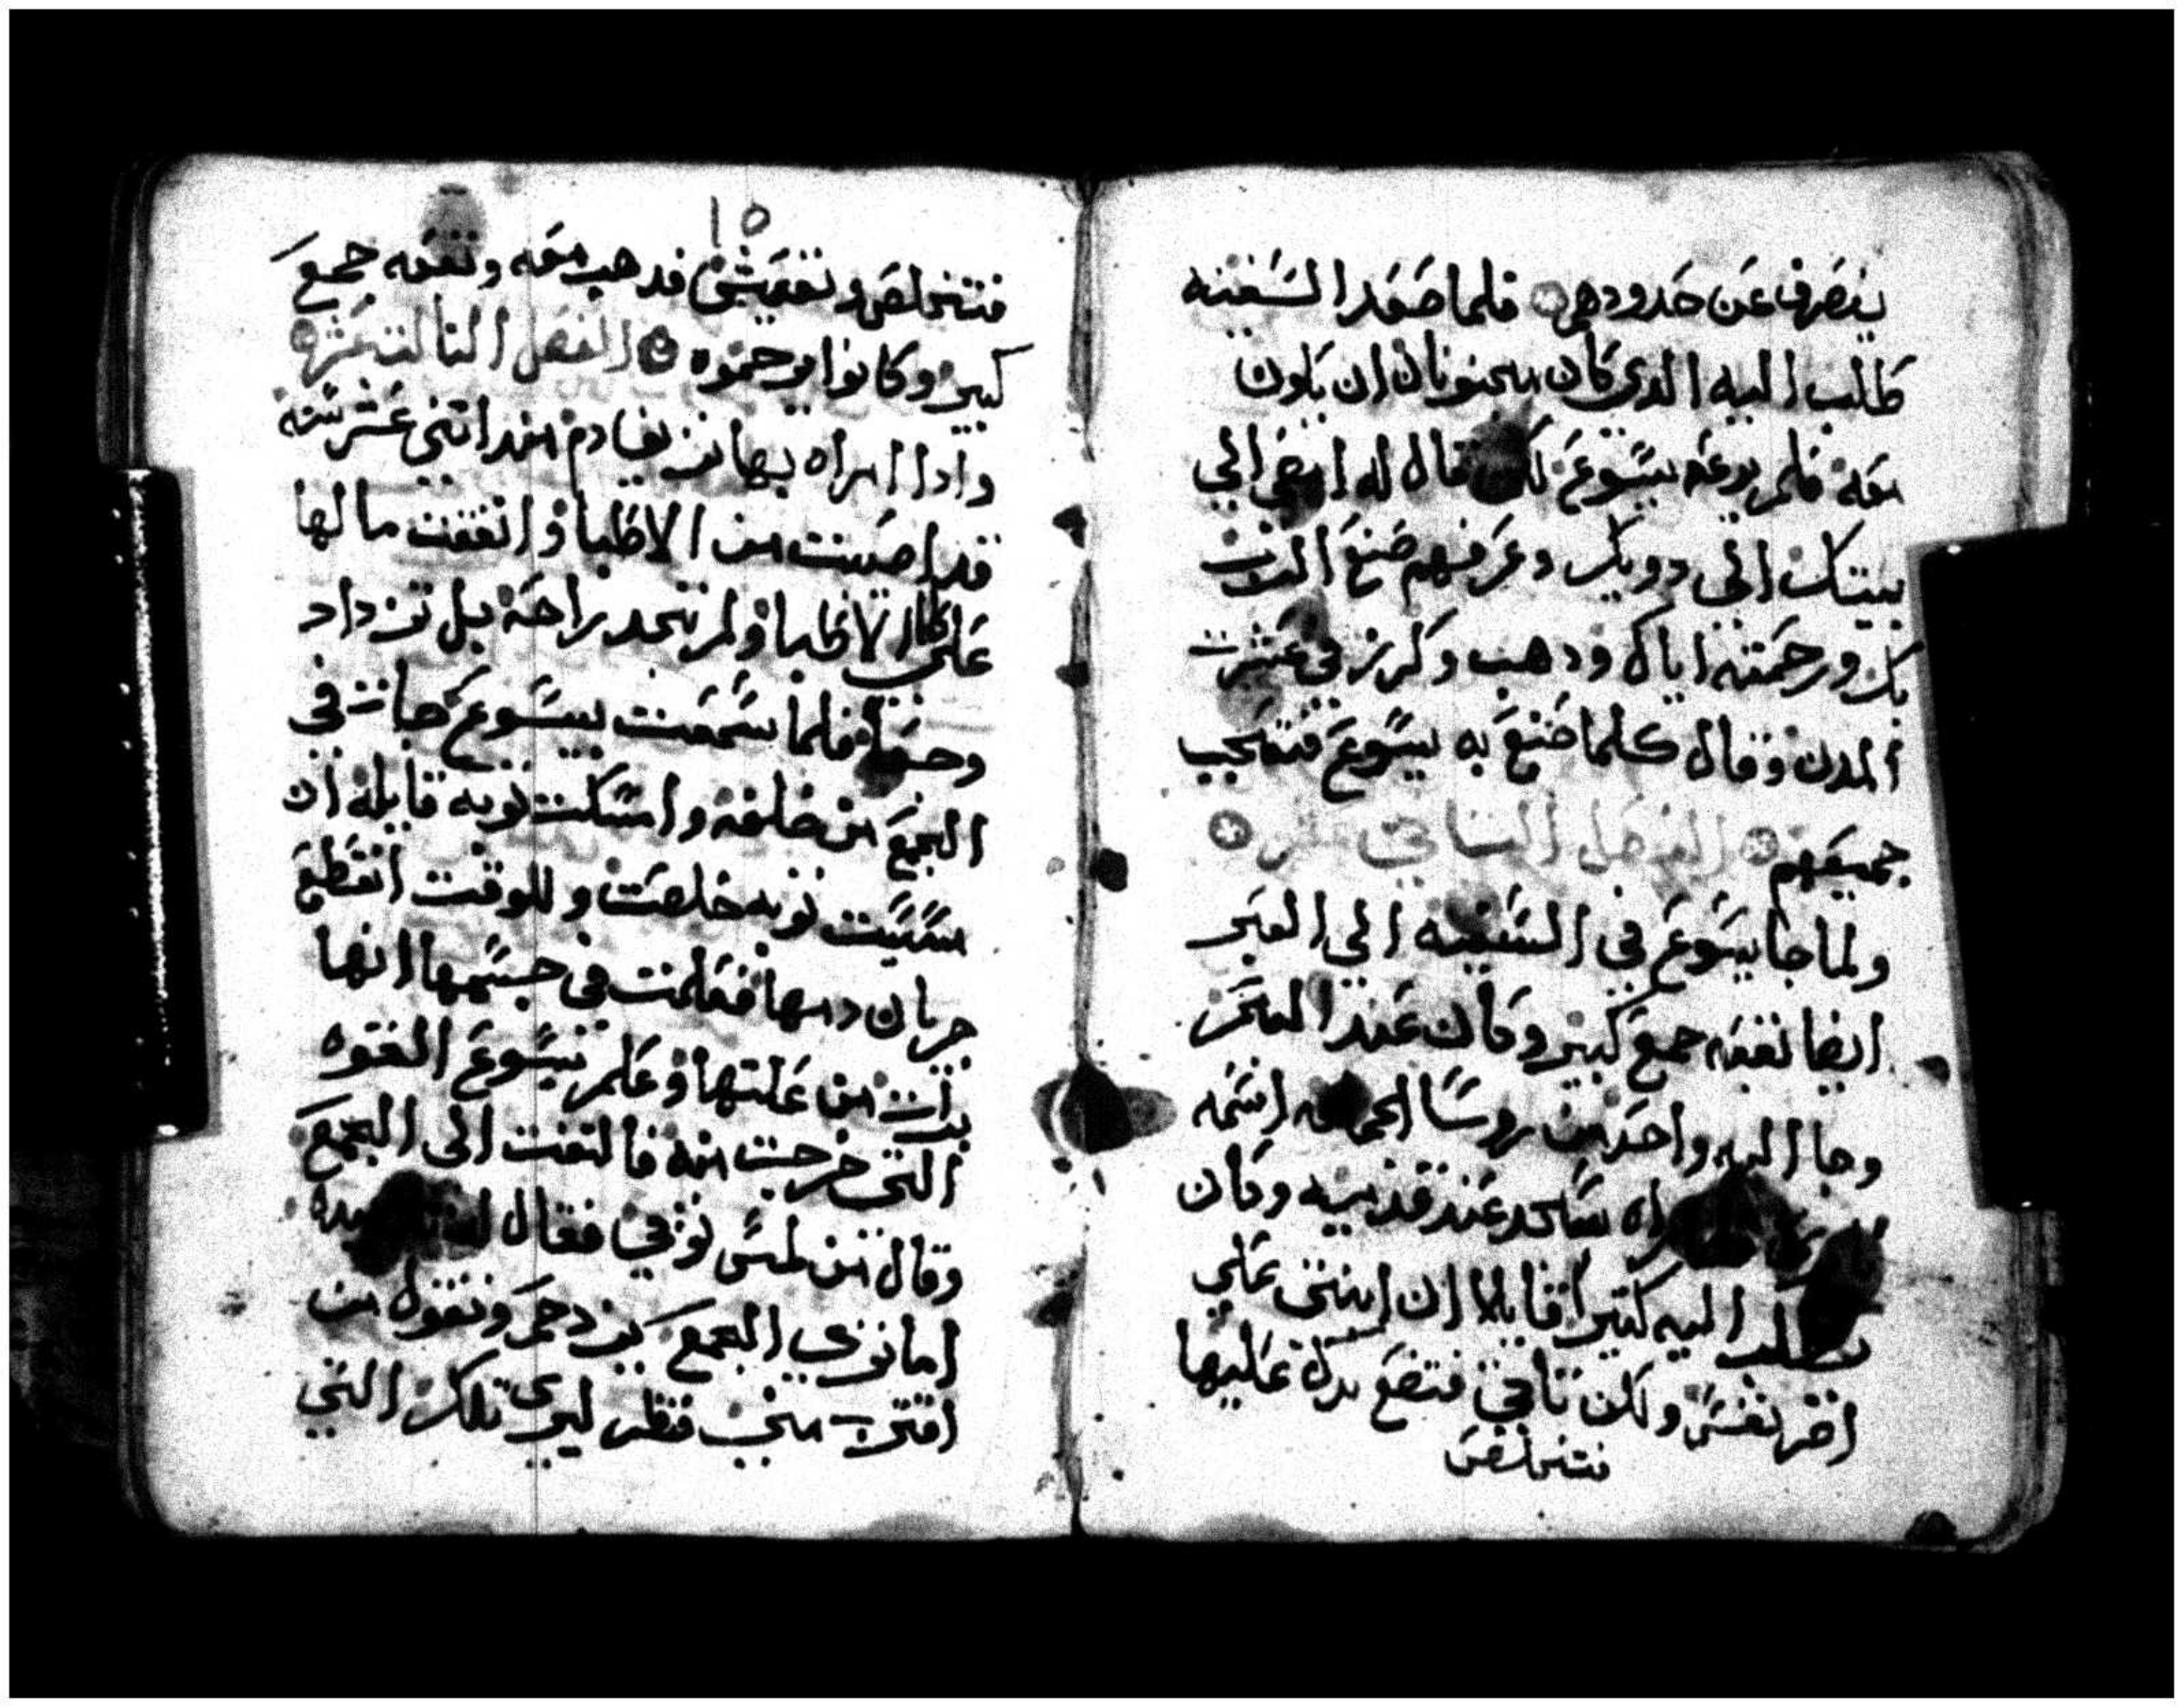 ينصرف عن حدودهم فلما صعد السفينه
طلب اليه الدي كان مجنونا ان يكون
معه فلم يدعه يسوع لكن قال له امضي الي
بيتك الي دويك وعرفهم صنع الرب
بك ورحمته اياك ودهب وكرز في عشرت
المدن وقال كلما صنع به يسوع فتعجب
جميعهم الفصل التاني عشر
ولما جا يسوع في السفينه الي العبر
ايضا تبعه جمع كبير وكان عند البحر
وجا اليه واحد من روسا اسمه
راه سجد عند قدميه وكان
يطلب اليه كتيرا قايلا ان ابنتي علي
اخر نفس ولكن تاتي فتضع يدك عليها
فتتخلص
١٥
فتتخلص وتعيش فدهب معه وتبعه جمع
كبير وكانوا يزحموه الفصل التالت عشر
وادا امراه بها نزيف دم مند اتني عشر سنه
قد اصيبت من الاطبا وانفقت مالها
علي الاطبا ولم تجد راحه بل تزداد
وجعا فلما سمعت بيسوع جات في
الجمع من خلفه وامسكت توبه قايله ان
مسيت توبه خلصت وللوقت انقطع
جريان دمها فعلمت في جسمها انها
برات من علتها وعلم يسوع القوه
التي خرجت منه فالتفت الي الجمع
وقال من لمس توبي فقال له
اما تري الجمع يزدحم وتقول من
اقترب مني فنظر ليري تلك التي